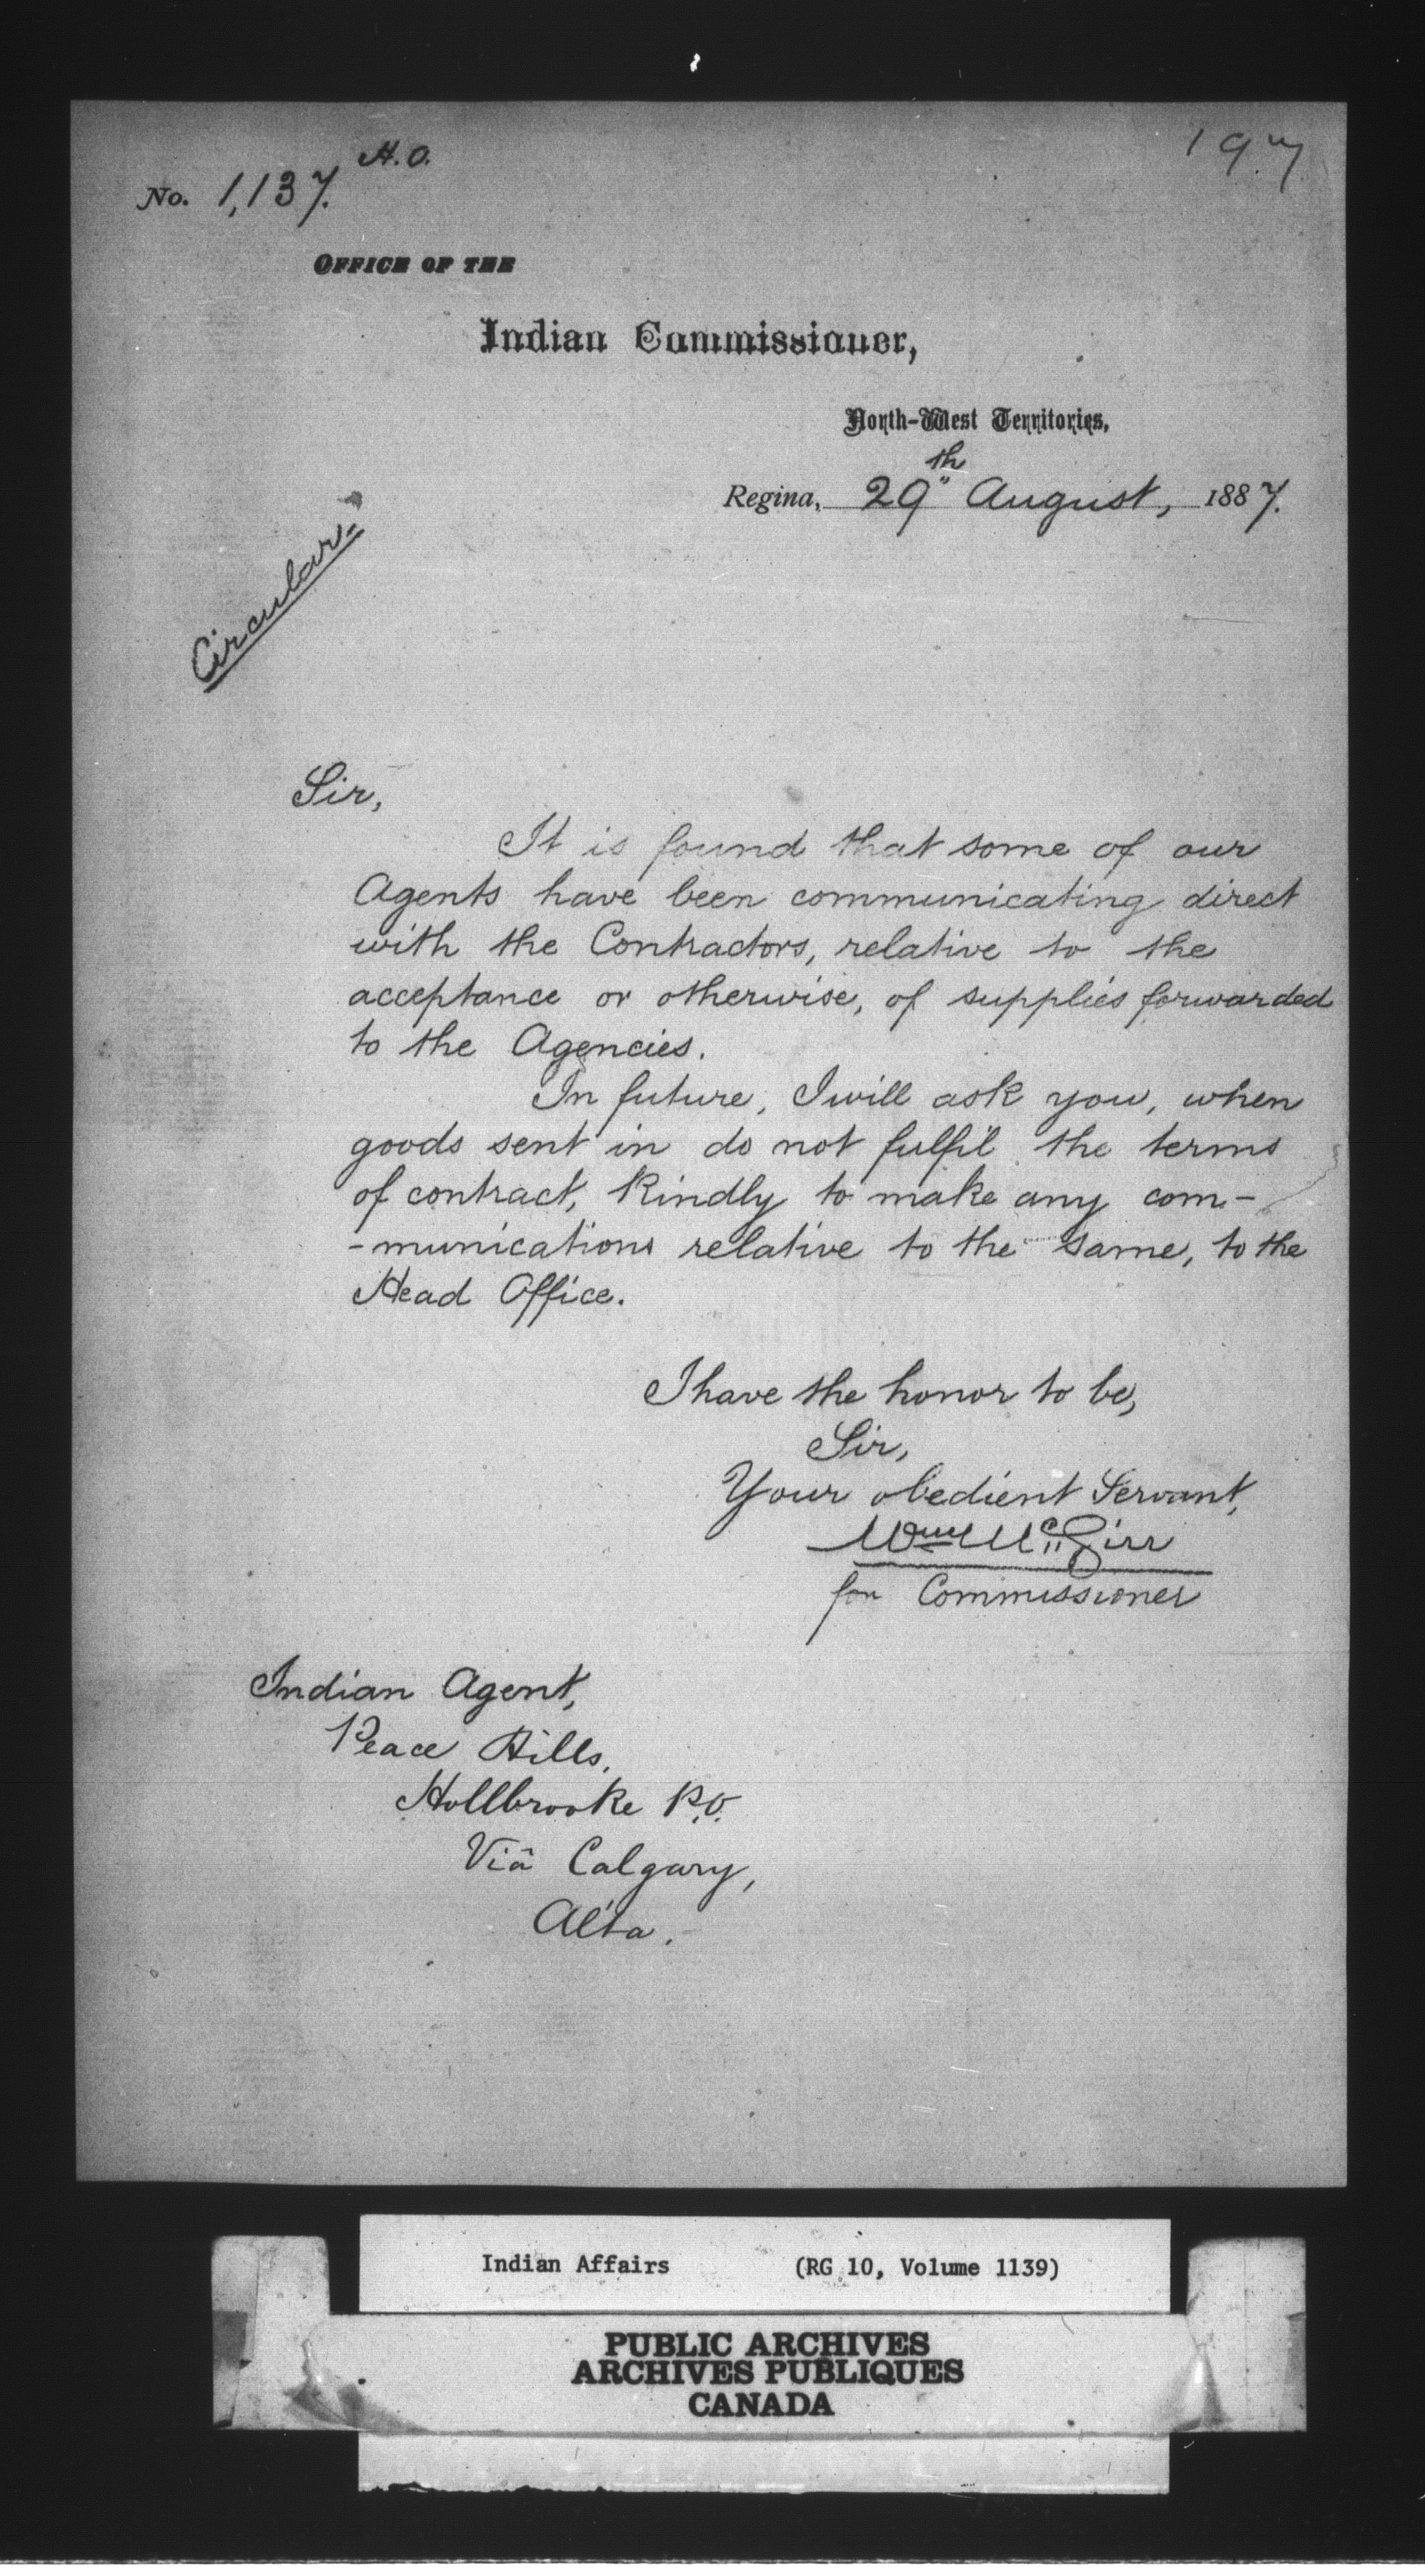 H.O.
197
No. 1,137.
OFFICE OF THE
Indian Commissioner,
North-West Territories,
Regina, 29th August, 1887.
Circular.
Sir,
It is found that some of our
Agents have been communicating direct
with the Contractors, relative to the
acceptance or otherwise, of supplies forwarded
to the Agencies.
In future, I will ask you, when
goods sent in do not fulfil the terms
of contract, kindly to make any com-
-munications relative to the same, to the
Head Office.
I have the honor to be,
Sir,
Your obedient Servant,
Wm McGirr
for Commissioner
Indian Agent,
Peace Hills,
Hollbrooke P.O.
Viâ Calgary,
Alta.
Indian Affairs (RG 10, Volume 1139)
PUBLIC ARCHIVES
ARCHIVES PUBLIQUES
CANADA